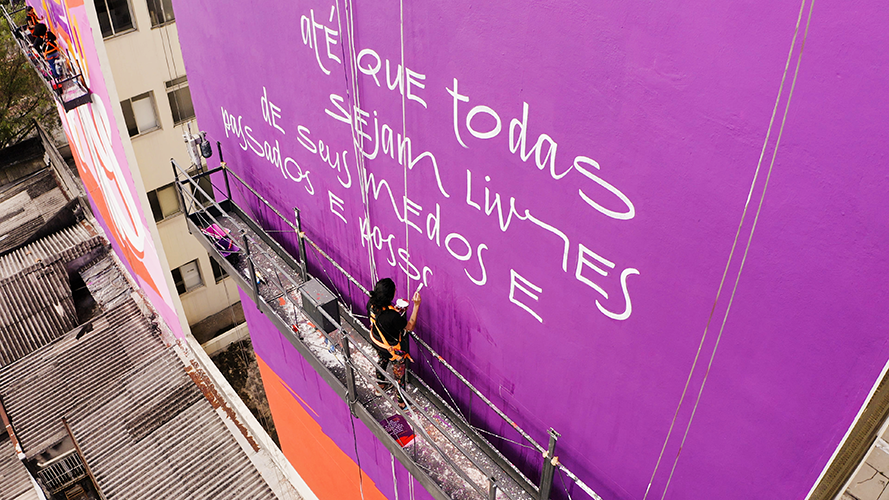 atÉ QUE todas
SEjam LivRES
dE SEUS mEdos E
passados E poss